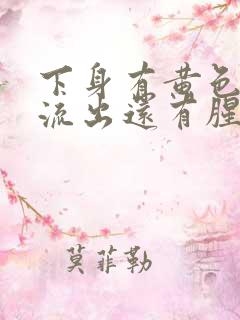 下身有黄色
流出还有腥
莫菲勒